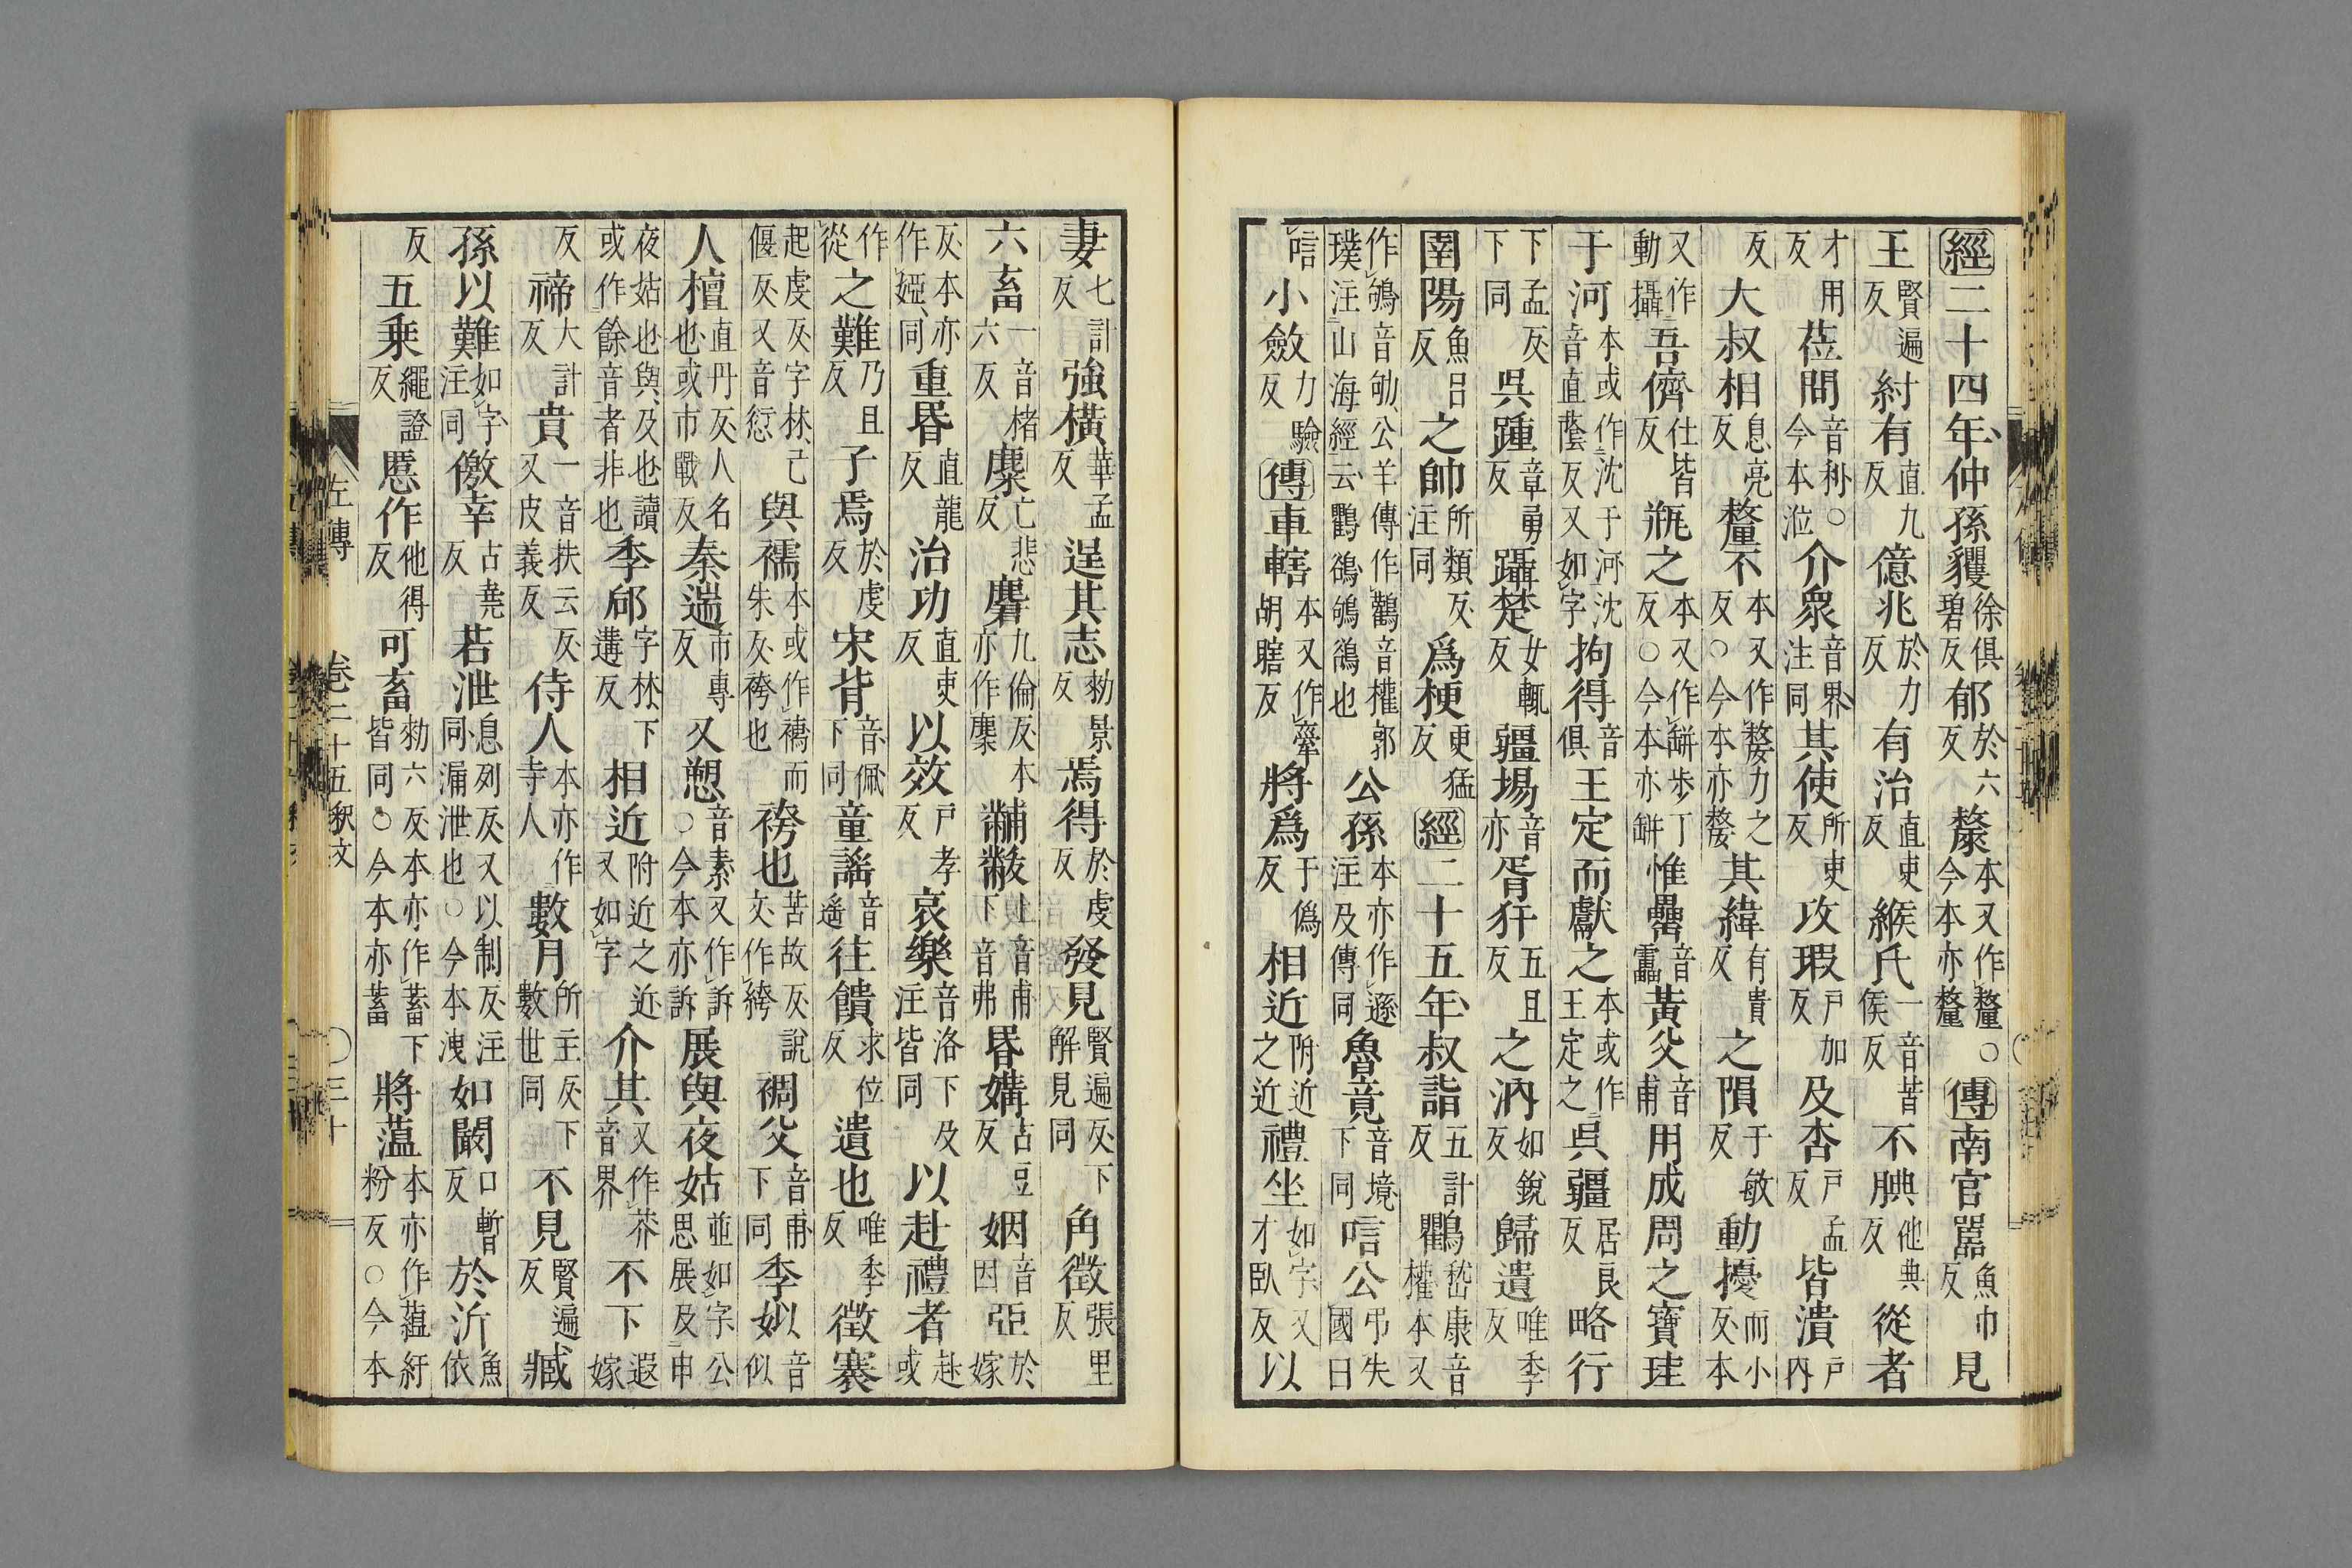 經二十四年仲孫貜徐俱碧反郁於六反斄本又作釐今本亦釐○傳南宮嚚魚巾反見
王賢遍反紂有直九反億兆於力反有治直吏反緱氏一音苦侯反不腆他典反從者
才用反蒞問音利○今本涖介眾音界注同其使所吏反攻瑕戶加反及杏戶孟反皆潰戶內
反大叔相息亮反釐不本又作嫠力之反○今本亦嫠其緯有貴反之隕于敏反動擾而小反本
又作動攝吾儕仕皆反瓶之本又作缾步丁反○今本亦缾惟罍音靁黃父音甫用成周之寶珪
于河本或作沈于河沈音直蔭反又如字拘得音俱王定而獻之本或作王定之吳疆居良反略行
下孟反下同吳踵章勇反躡楚女輒反疆埸音亦胥犴五旦反之汭如銳反歸遺唯季反
圉陽魚呂反之帥所類反注同爲梗更猛反經二十五年叔詣五計反鸜嵇康音權本又
作鴝音劬公羊傳作鸛音權郭璞注山海經云鸜鵒鴝鵒也公孫本亦作遜注及傳同魯竟音境下同唁公弔失國曰
唁小斂力驗反傳車轄本又作舝胡瞎反將爲于僞反相近附近之近禮坐如字又才臥反以
妻七計反強橫華孟反逞其志勑景反焉得於虔反發見賢遍反下解見同角徵張里反
六畜一音楮六反麋亡悲反麏九倫反本亦作麇黼黻上音甫下音弗昬媾古豆反姻音因亞於嫁
反本亦作婭同重昬直龍反治功直吏反以效戶孝反哀樂音洛下及注皆同以赴禮者赴或
作從之難乃旦反子焉於虔反宋背音佩下同童謠音遙往饋求位反遺也唯季反徵褰
起虔反字林己偃反又音愆與襦本或作襦而朱反袴也袴也苦故反說文作絝裯父音甫下同季姒音似
人檀直丹反人名也或市戰反秦遄市專反又愬音素又作訴○今本亦訴展與夜姑並如字公思展及申
夜姑也與及也讀或作餘音者非也季郈字林下遘反相近附近之近又如字介其又作芥音界不下遐嫁
反禘大計反賁一音扶云反又皮義反侍人本亦作寺人數月所主反下數世同不見賢遍反臧
孫以難如字注同儌幸古堯反若泄息列反又以制反注同漏泄也○今本洩如闞口暫反於沂魚依
反五乘繩證反慝作他得反可畜勑六反本亦作蓄下皆同○今本亦蓄將薀本亦作蘊紆粉反○今本
左傳 卷二十五釋文 ○三十